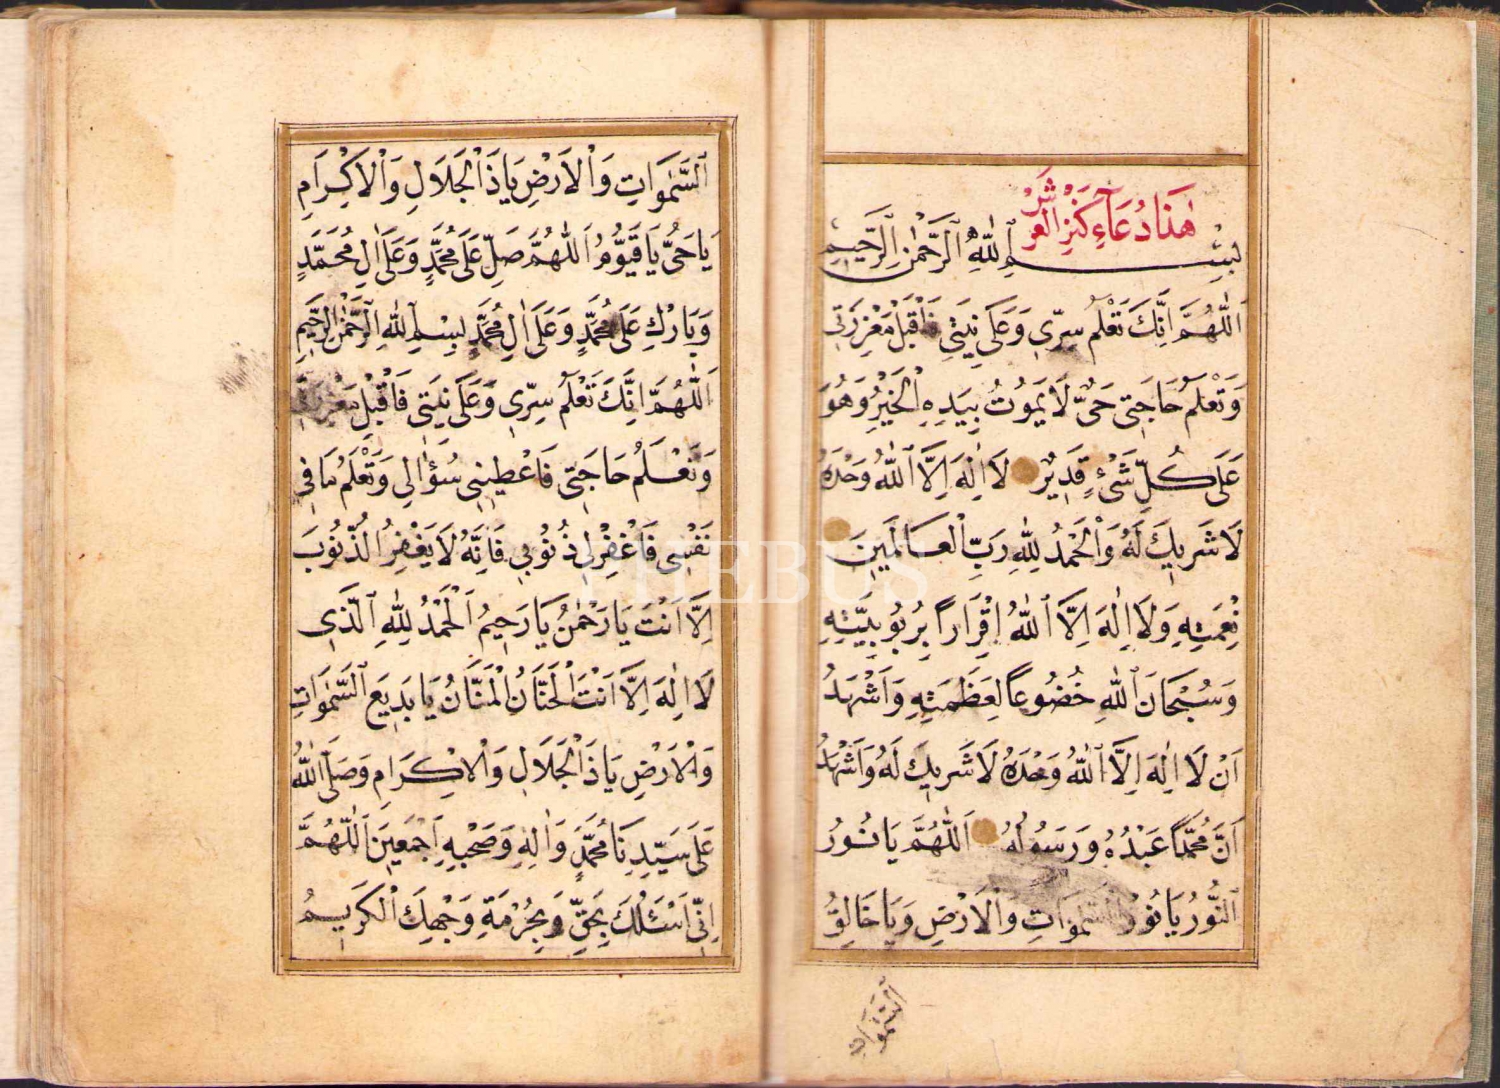 هٰذَا دُعَآءِ كَنْزِ الْعَرْشْ
بِسْمِ اللّٰهِ الرَّحْمٰنِ الرَّحِيمِ
اَللّٰهُمَّ اِنَّكَ تَعْلَمُ سِرِّى وَعَلَى نِيَتِى فَاقْبَلْ مَعْزِرَتِى
وَتَعْلَمُ حَاجَتِى حَىٌّ لَا يَمُوتُ بِيَدِهِ الْخَيْرُ وَهُوَ
عَلَى كُلِّ شَىْءٍ قَدِيرٌ لَا اِلٰهَ اِلَّا اللّٰهُ وَحْدَهُ
لَا شَرِيكَ لَهُ وَالْحَمْدُ لِلّٰهِ رَبِّ الْعَالَمِينَ
نِعْمَتِهِ وَلَا اِلٰهَ اِلَّا اللّٰهُ اِقْرَارًا بِرُبُوبِيَّتِهِ
وَسُبْحَانَ اللّٰهِ خُضُوعًا لِعَظَمَتِهِ وَاَشْهَدُ
اَنْ لَا اِلٰهَ اِلَّا اللّٰهُ وَحْدَهُ لَا شَرِيكَ لَهُ وَاَشْهَدُ
اَنَّ مُحَمَّدًا عَبْدُهُ وَرَسُولُهُ اَللّٰهُمَّ يَا نُورُ
النُّورُ يَا نُورُ السَّمٰوَاتِ وَالْاَرْضِ وَيَا خَالِقُ
السَّمٰوَاتِ
اَلسَّمٰوَاتِ وَالْاَرْضِ يَا ذَا الْجَلَالِ وَالْاِكْرَامِ
يَا حَىُّ يَا قَيُّومُ اَللّٰهُمَّ صَلِّ عَلَى مُحَمَّدٍ وَعَلَى اٰلِ مُحَمَّدٍ
وَبَارِكْ عَلَى مُحَمَّدٍ وَعَلَى اٰلِ مُحَمَّدٍ بِسْمِ اللّٰهِ الرَّحْمٰنِ الرَّحِيمِ
اَللّٰهُمَّ اِنَّكَ تَعْلَمُ سِرِّى وَعَلَى نِيَتِى فَاقْبَلْ مَعْزِرَتِى
وَتَعْلَمُ حَاجَتِى فَاعْطِينِى سُؤَالِى وَتَعْلَمُ مَا فِى
نَفْسِى فَاغْفِرْلِى ذُنُوبِى فَاِنَّهُ لَا يَغْفِرُ الذُّنُوبَ
اِلَّا اَنْتَ يَا رَحْمٰنُ يَا رَحِيمُ اَلْحَمْدُ لِلّٰهِ الَّذِى
لَا اِلٰهَ اِلَّا اَنْتَ الْحَنَّانُ الْمَنَّانُ يَا بَدِيعَ السَّمٰوَاتِ
وَالْاَرْضِ يَا ذَا الْجَلَالِ وَالْاِكْرَامِ وَصَلَّى اللّٰهُ
عَلَى سَيِّدِنَا مُحَمَّدٍ وَاٰلِهِ وَصَحْبِهِ اَجْمَعِينَ اَللّٰهُمَّ
اِنِّى اَسْئَلُكَ بِحَقِّ وَبِحُرْمَةِ وَجْهِكَ الْكَرِيمُ
THEBUS